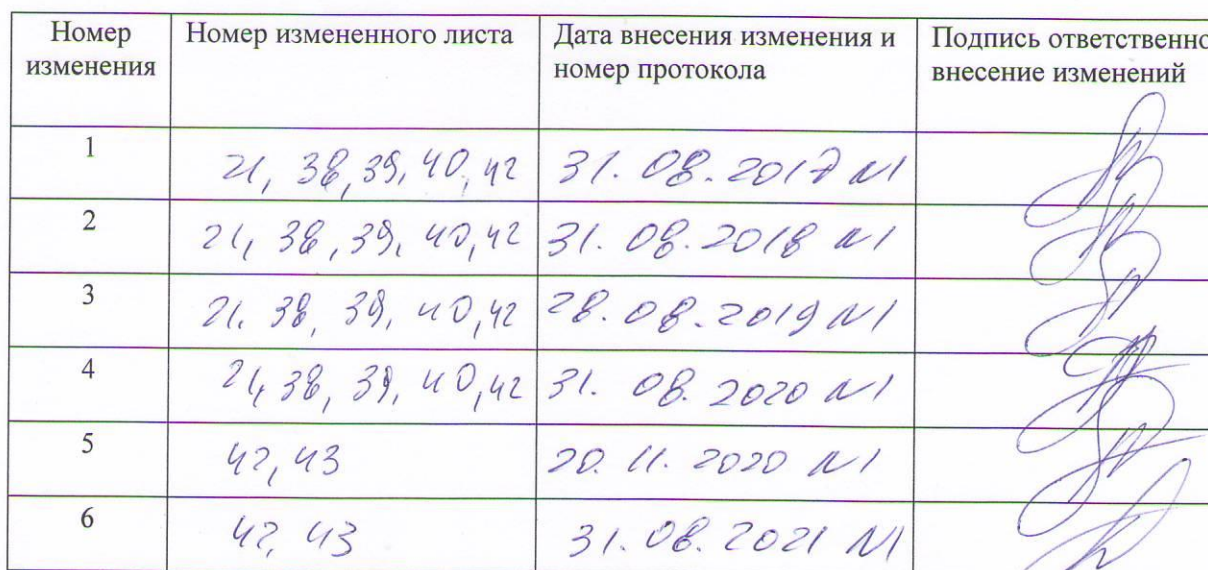 Номер изменения
Номер измененного листа
Дата внесения изменения и номер протокола
Подпись ответственно
внесение изменений
1 21, 38, 39, 40, 42 31.08.2017 N1
2 21, 38, 39, 40, 42 31.08.2018 N1
3 21, 38, 39, 40, 42 28.08.2019 N1
4 21, 38, 39, 40, 42 31.08.2020 N1
5 42, 43 20.11.2020 N1
6 42, 43 31.08.2021 N1